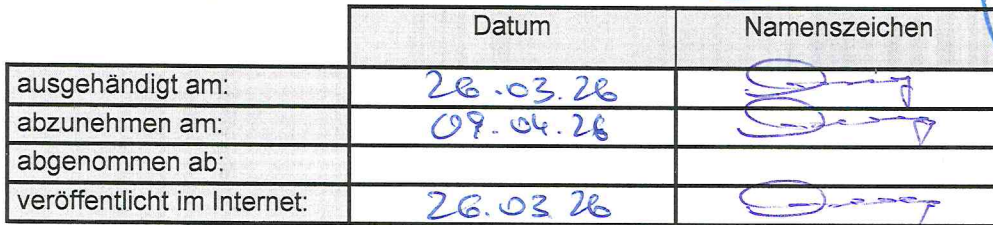 Datum Namenszeichen
ausgehändigt am: 26.03.26
abzunehmen am: 09.04.26
abgenommen ab:
veröffentlicht im Internet: 26.03 26